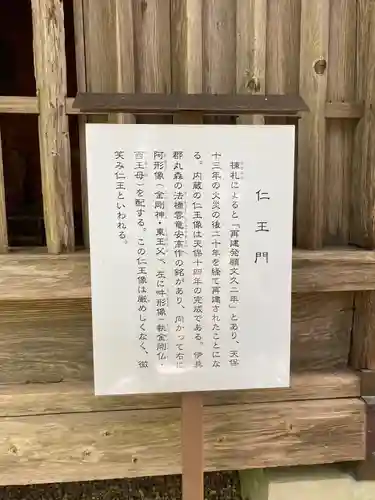 仁王門
棟札によると『再建発願文久二年』とあり、天保
十三年の火災の後二十年を経て再建されたことにな
る。内蔵の仁王像は天保十四年の完成である。伊具
郡丸森の法橋雲竜安高作の銘があり、向かって右に
阿形像(金剛神・東王父)、左に吽形像(執金剛仏・
西王母)を配する。この仁王像は厳めしくなく、微
笑み仁王といわれる。